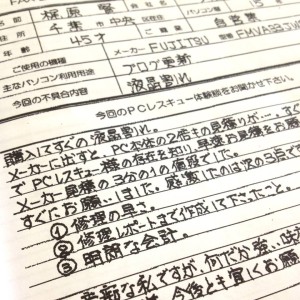 梶原 賢
千葉 市 中央 区
パソコン歴 15
年齢 45才 ご職業 自営業
ご使用の機種 メーカー FUJITSU
主なパソコン利用用途 ブログ更新
今回の不具合内容 液晶割れ
今回のPCレスキュー体験談をお聞かせ下さい。
購入してすぐの液晶割れ。
メーカーに出すと、PC本体の2倍もの見積りが…。す
でPCレスキュー様の存在を知り、早速お見積をお願
メーカー見積の3分の1の値段でした。
すぐにお願いしました。感激したのは次の3点です
① 修理の早さ。
② 修理レポートまで作成して下さったこと。
③ 明朗な会計。
な私ですが、何だか
今後とも宜しくお願